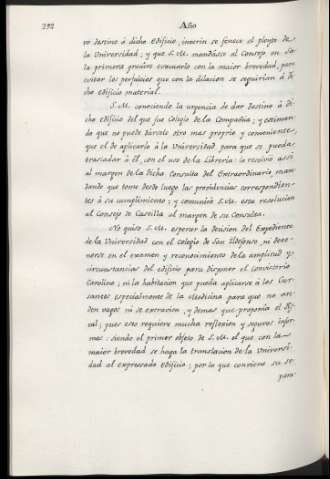 292 Año
vo destino á dicho Edificio, interin se fenece el pleyto de
la Universidad; y que S.M. mandáse al Consejo en Sa-
la primera pudiese evacuarlo con la maior brevedad, para
evitar los perjuicios que con la dilacion se seguirian á di-
cho edificio material.
S.M. conociendo la urgencia de dar destino á di-
cho Edificio del que fue Colegio de la Compañia; y estiman-
do que no puede dársele otro mas propio y conveniente,
que el de aplicarlo à la Universidad para que se pueda
trasladar á él, con el uso de la Libreria: lo resolvió assi
al margen de la dicha Consulta del Extraordinario, man-
dando que tome desde luego las providencias correspondien-
tes á su cumplimiento; y comunicó S.M. esta resolucion
al Consejo de Castilla al margen de su Consulta.
No quiso S.M. esperar la decision del Expediente
de la Universidad con el Colegio de San Ildefonso, ni dete-
nerse en el examen y reconocimiento de la amplitud y
circunstancias del edificio para disponer el Convictorio
Carolino; ni la habitacion que pueda aplicarse à los Cur-
santes especialmente de la Medicina para que no an-
den vagos ni se extravien, y demas que proponia el Fis-
cal; pues esto requiere mucha reflexion y seguros infor-
mes: siendo el primer objeto de S.M. el que con la
maior brevedad se haga la translacion de la Universi-
dad al expressado Edificio; por lo que conviene su se-
para-